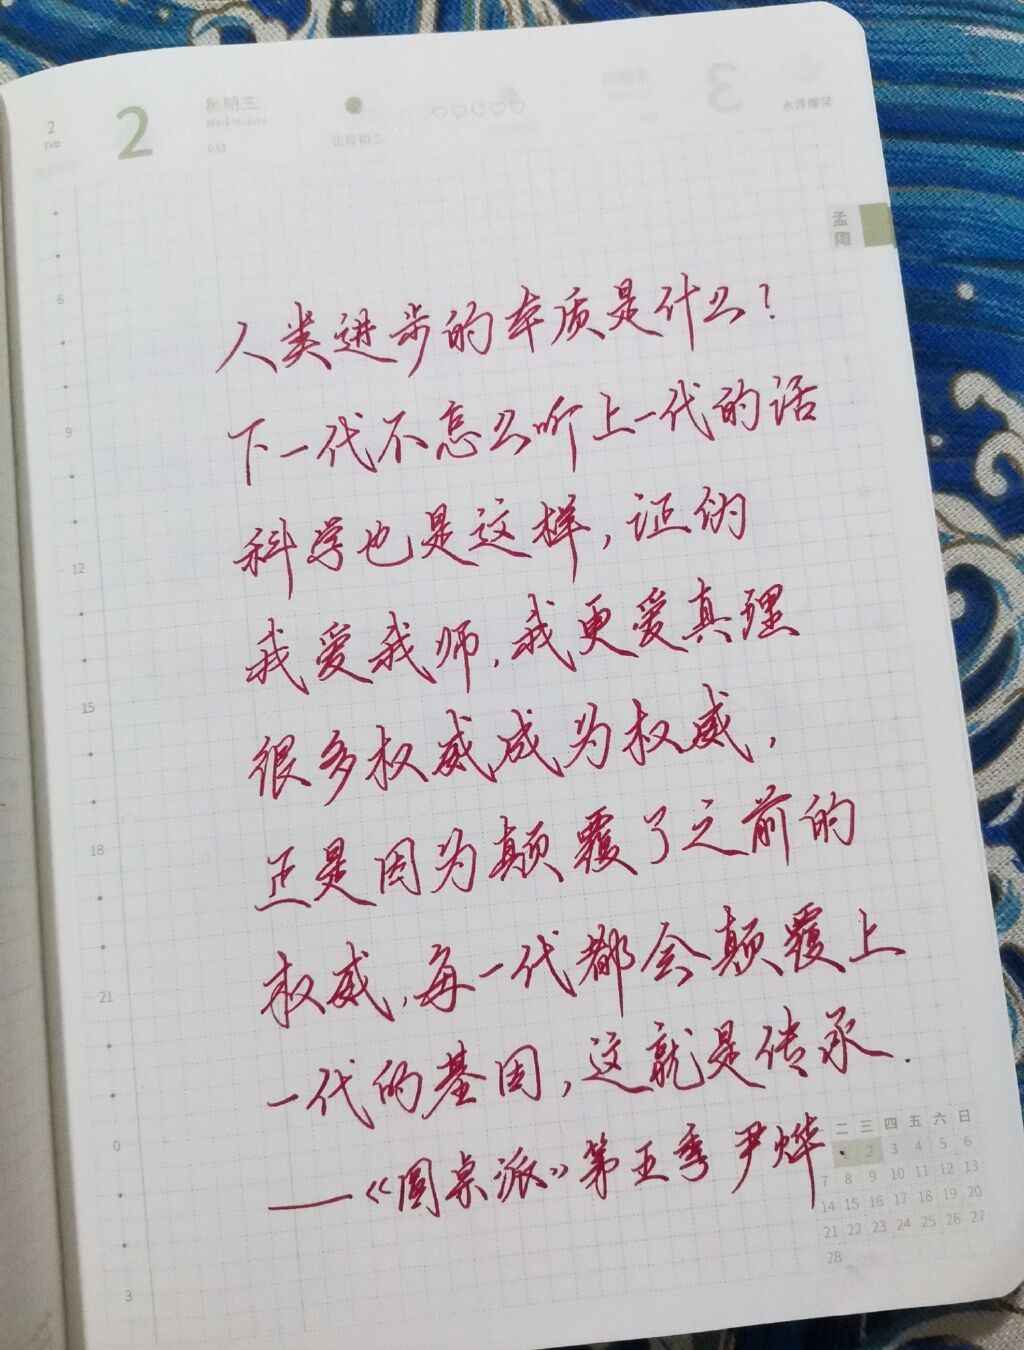 2
Feb
2
星期三
Wednesday
033
正月初二
3
孟陬
6
9
12
15
18
21
0
3
人类进步的本质是什么？
下一代不怎么听上一代的话
科学也是这样，证伪
我爱我师，我更爱真理
很多权威成为权威，
正是因为颠覆了之前的
权威，每一代都会颠覆上
一代的基因，这就是传承．
——《圆桌派》第五季 尹烨
二 三 四 五 六 日
2 3 4 5 6
7 8 9 10 11 12 13
14 15 16 17 18 19 20
21 22 23 24 25 26 27
28